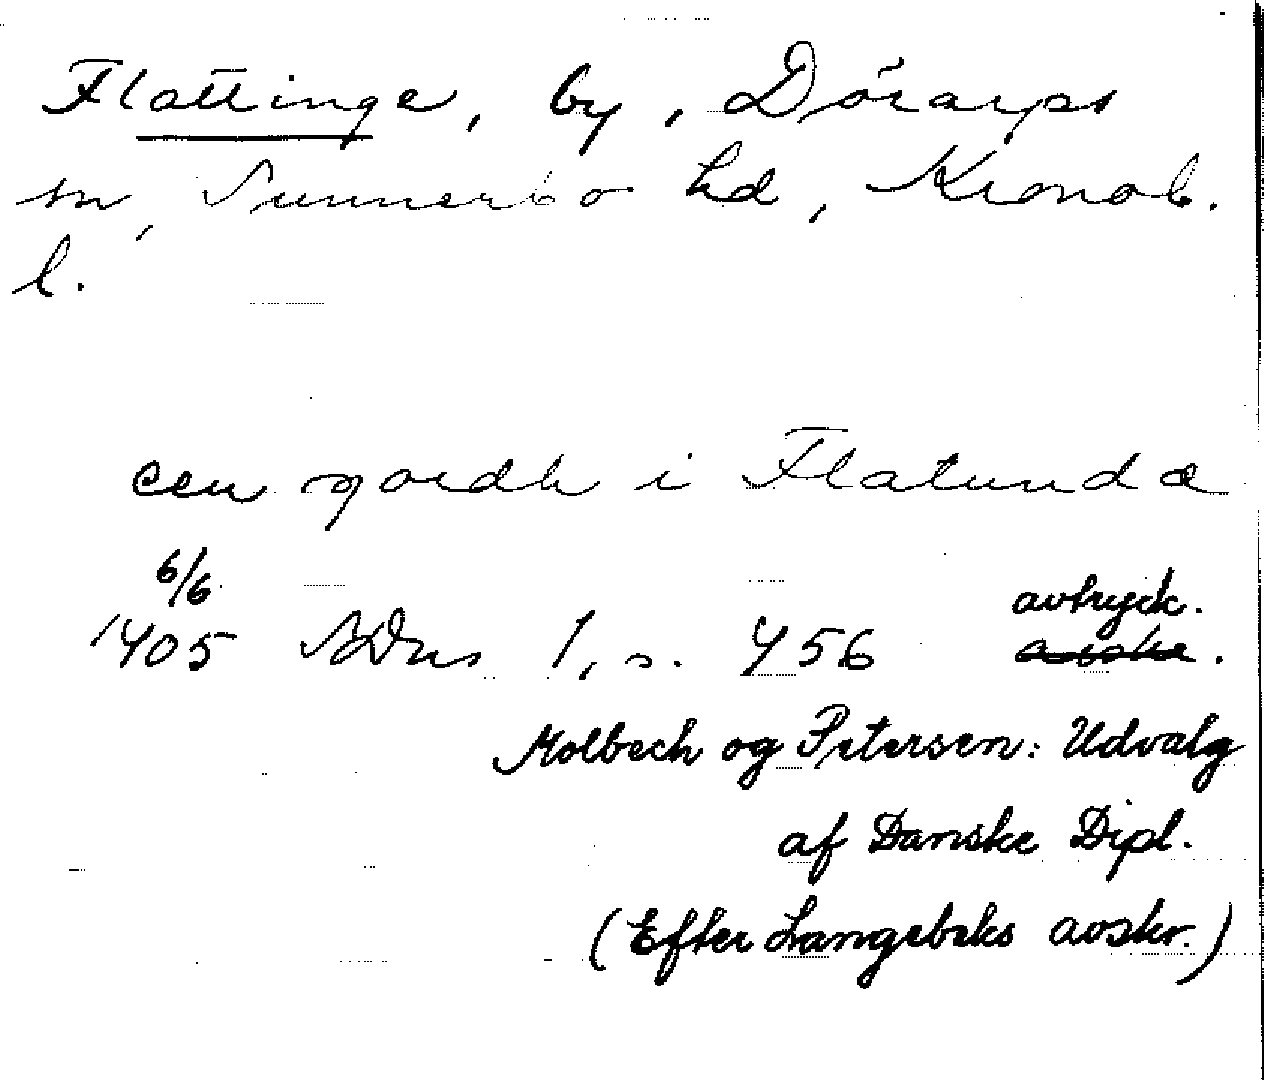 Flattinge, by, Dörarps
sn, Sunnerbo hd, Kronob.
l.
een gardh i Flatundæ
6/6
1405 SDns 1, s. 456 avtryck.
Molbech og Petersen: Udvalg
af Danske Dipl.
(Efter Langebeks avskr.)